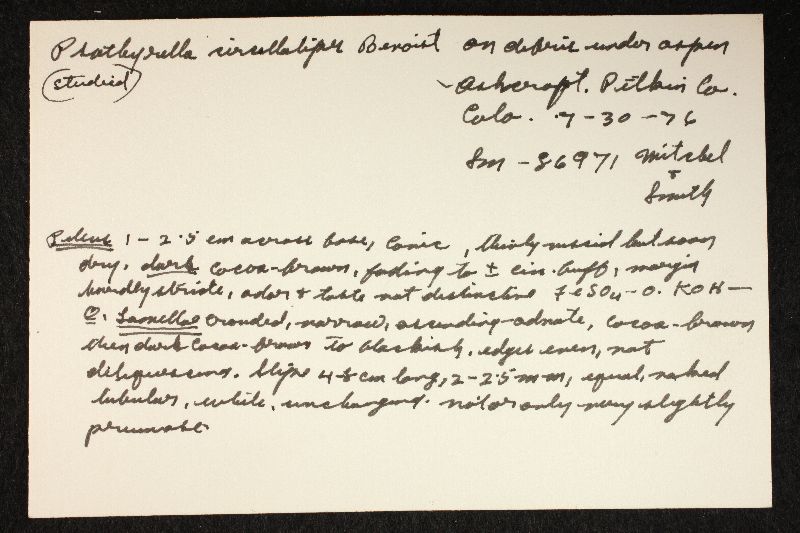 Psathyrella circellatipes Benoist on debris under aspen
(studied)
Ashcroft. Pitkin Co.
Colo. 7-30-76
Sm - 86971 Mitchel
&
Smith
Pileus 1 - 2.5 cm across base, conic, thinly viscid but soon
dry, dark cocoa-brown, fading to ± cin. buff, margin
hardly striate, odor & taste not distinctive FeSO4 - O. KOH -
O. Lamellae crowded, narrow, ascending-adnate, cocoa-brown
then dark cocoa-brown to blackish, edges even, not
deliquescing. Stipe 4-8 cm long, 2-2.5 mm, equal, naked
tubular, white, unchanging. not or only very slightly
pruinose